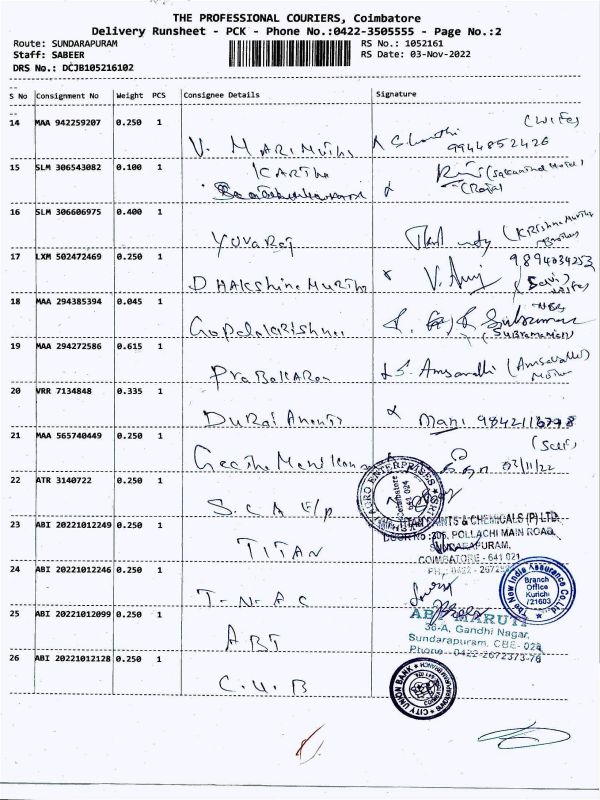 THE PROFESSIONAL COURIERS, Coimbatore
Delivery Runsheet - PCK - Phone No.:0422-3505555 - Page No.:2
Route: SUNDARAPURAM RS No.: 1052161
Staff: SABEER RS Date: 03-Nov-2022
DRS No.: DCJB105216102
S No Consignment No Weight PCS Consignee Details Signature
14 MAA 942259207 0.250 1 V. MARIMUTHU (Wife) 9944852426
15 SLM 306543082 0.100 1 KARTHI (Raja)
16 SLM 306606975 0.400 1 YUVARAJ (Krishnamurthy Brother)
17 LXM 502472469 0.250 1 DHAKSHINAMURTHI 9894034253 (Selvi) Wife
18 MAA 294385394 0.045 1 Gopalakrishnan (SUBRAMANIAN)
19 MAA 294272586 0.615 1 PRABAKARAN
20 VRR 7134848 0.335 1 DURAI ANAND Mani
21 MAA 565740449 0.250 1 (Self) 03/11/22
22 ATR 3140722 0.250 1 AGRO ENTERPRISES Coimbatore 641 024
23 ABI 20221012249 0.250 1 TITAN
TITAN PAINTS & CHEMICALS (P) LTD.
DOOR NO: 305, POLLACHI MAIN ROAD,
SUNDARAPURAM,
COIMBATORE - 641 021
24 ABI 20221012246 0.250 1 T.N.A.C The New India Assurance Co. Ltd Branch Office Kurichi 721603
25 ABI 20221012099 0.250 1 ABT
ABT MARUTI
36-A, Gandhi Nagar,
Sundarapuram, CBE-024
Phone - 0422-2672373-76
26 ABI 20221012128 0.250 1 C.U.B CITY UNION BANK